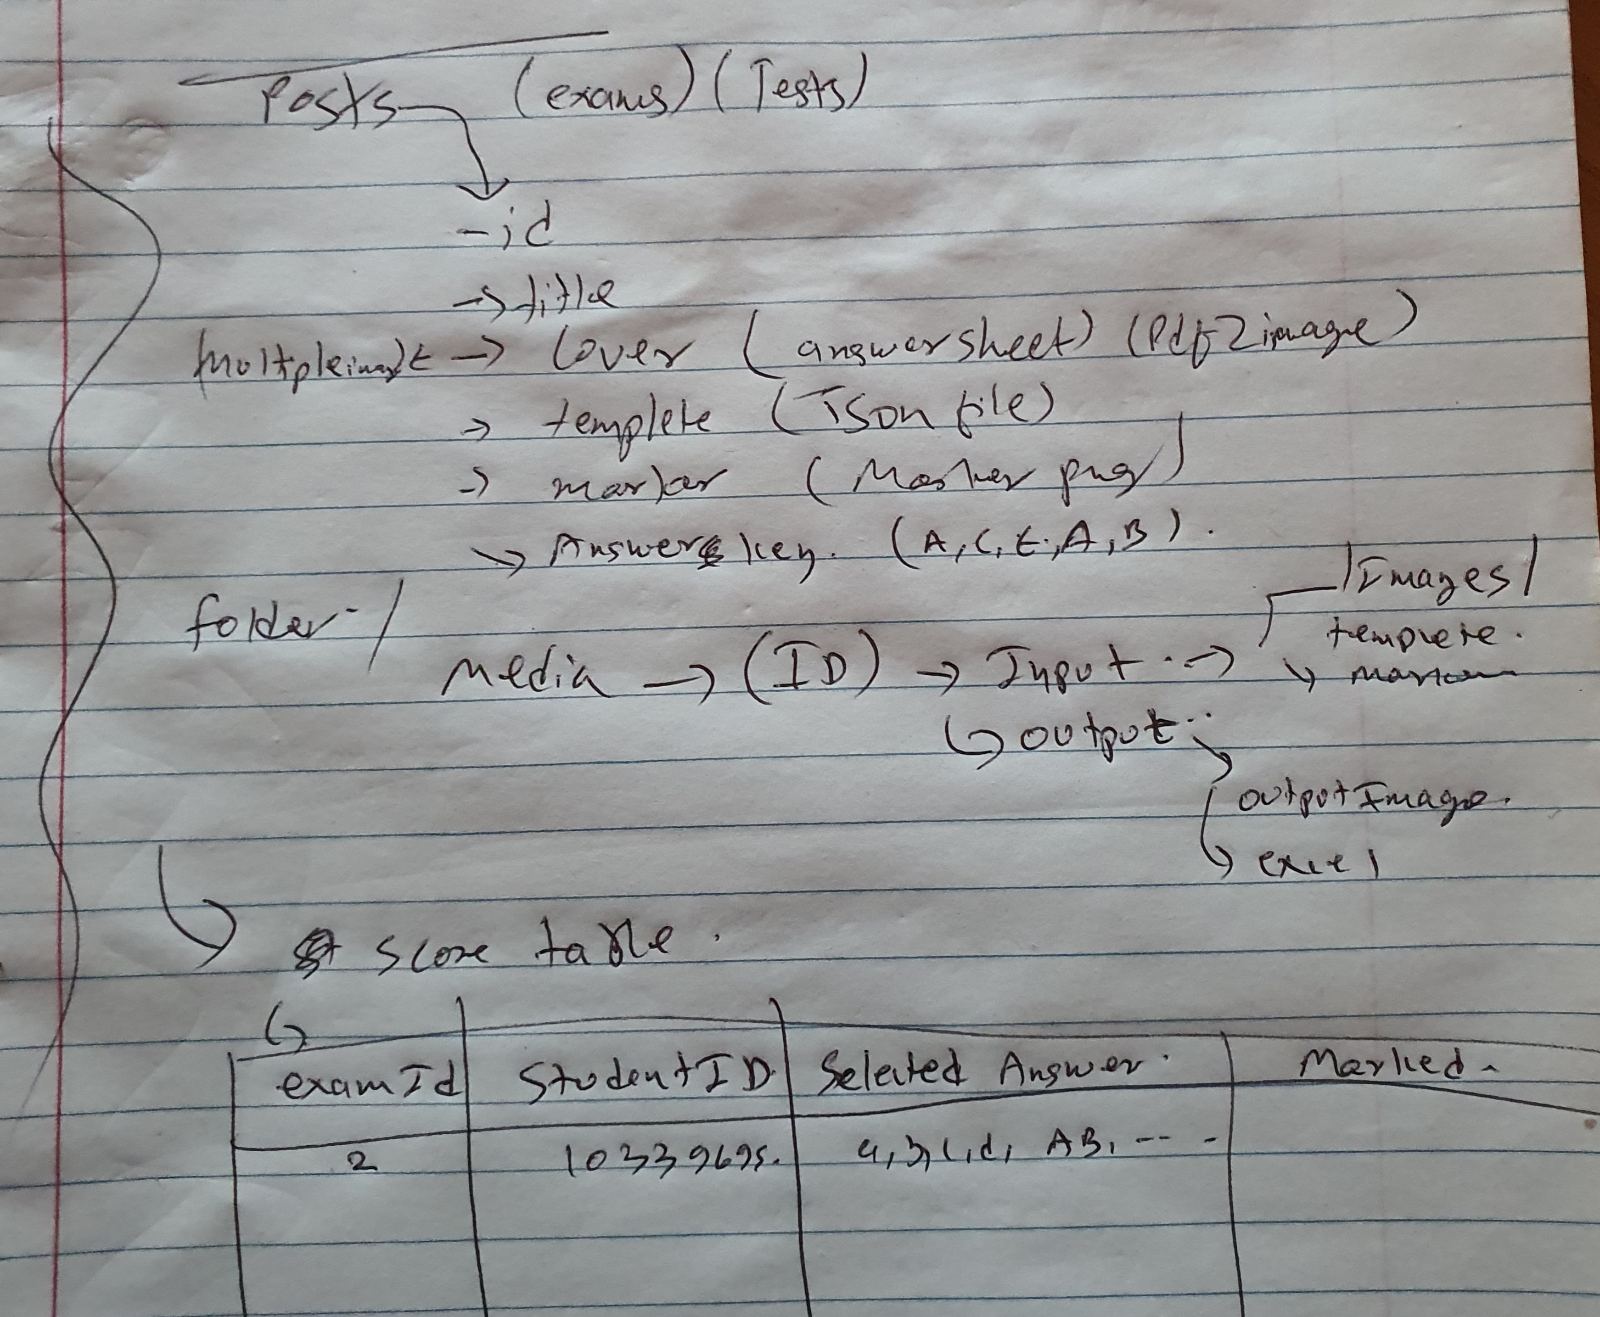 Posts (exams) (Tests)
- id
→ title
multiple image → Cover (answersheet) (Pdf2image)
→ templete (Json file)
→ marker (Marker png)
→ Answers key. (A, C, E, A, B).
folder - /
/Images/
templete.
Media → (ID) → Input →
→ output
outputImage.
excel
score table.
examId StudentID Selected Answer Marked
2 10339695. a, b, c, d, AB, ---